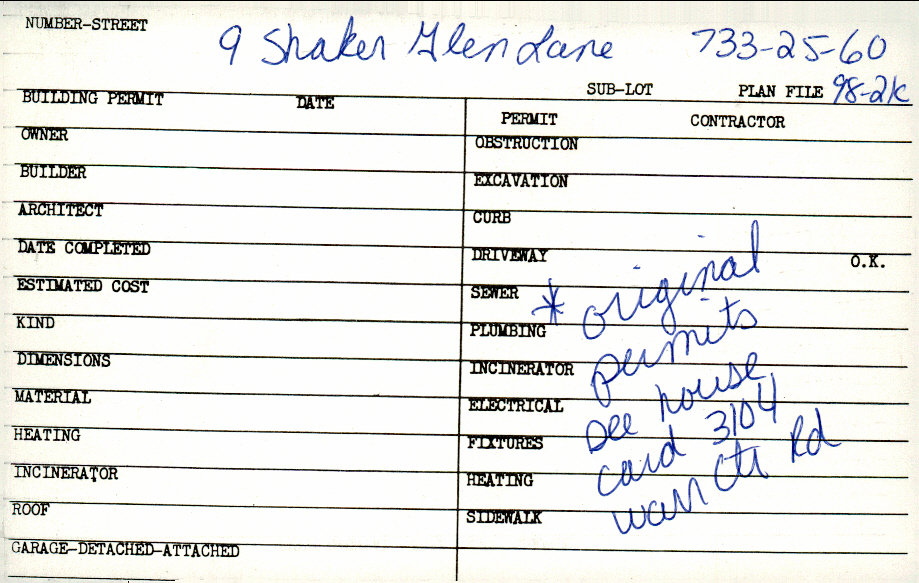 NUMBER-STREET
9 Shaker Glen Lane 733-25-60
SUB-LOT PLAN FILE 98-2K
BUILDING PERMIT DATE
PERMIT CONTRACTOR
OWNER
OBSTRUCTION
BUILDER
EXCAVATION
ARCHITECT
CURB
DATE COMPLETED
DRIVEWAY O.K.
ESTIMATED COST
SEWER
KIND
PLUMBING
DIMENSIONS
INCINERATOR
MATERIAL
ELECTRICAL
HEATING
FIXTURES
INCINERATOR
HEATING
ROOF
SIDEWALK
GARAGE-DETACHED-ATTACHED
* original
permits
see house
card 3104
warr ctr Rd